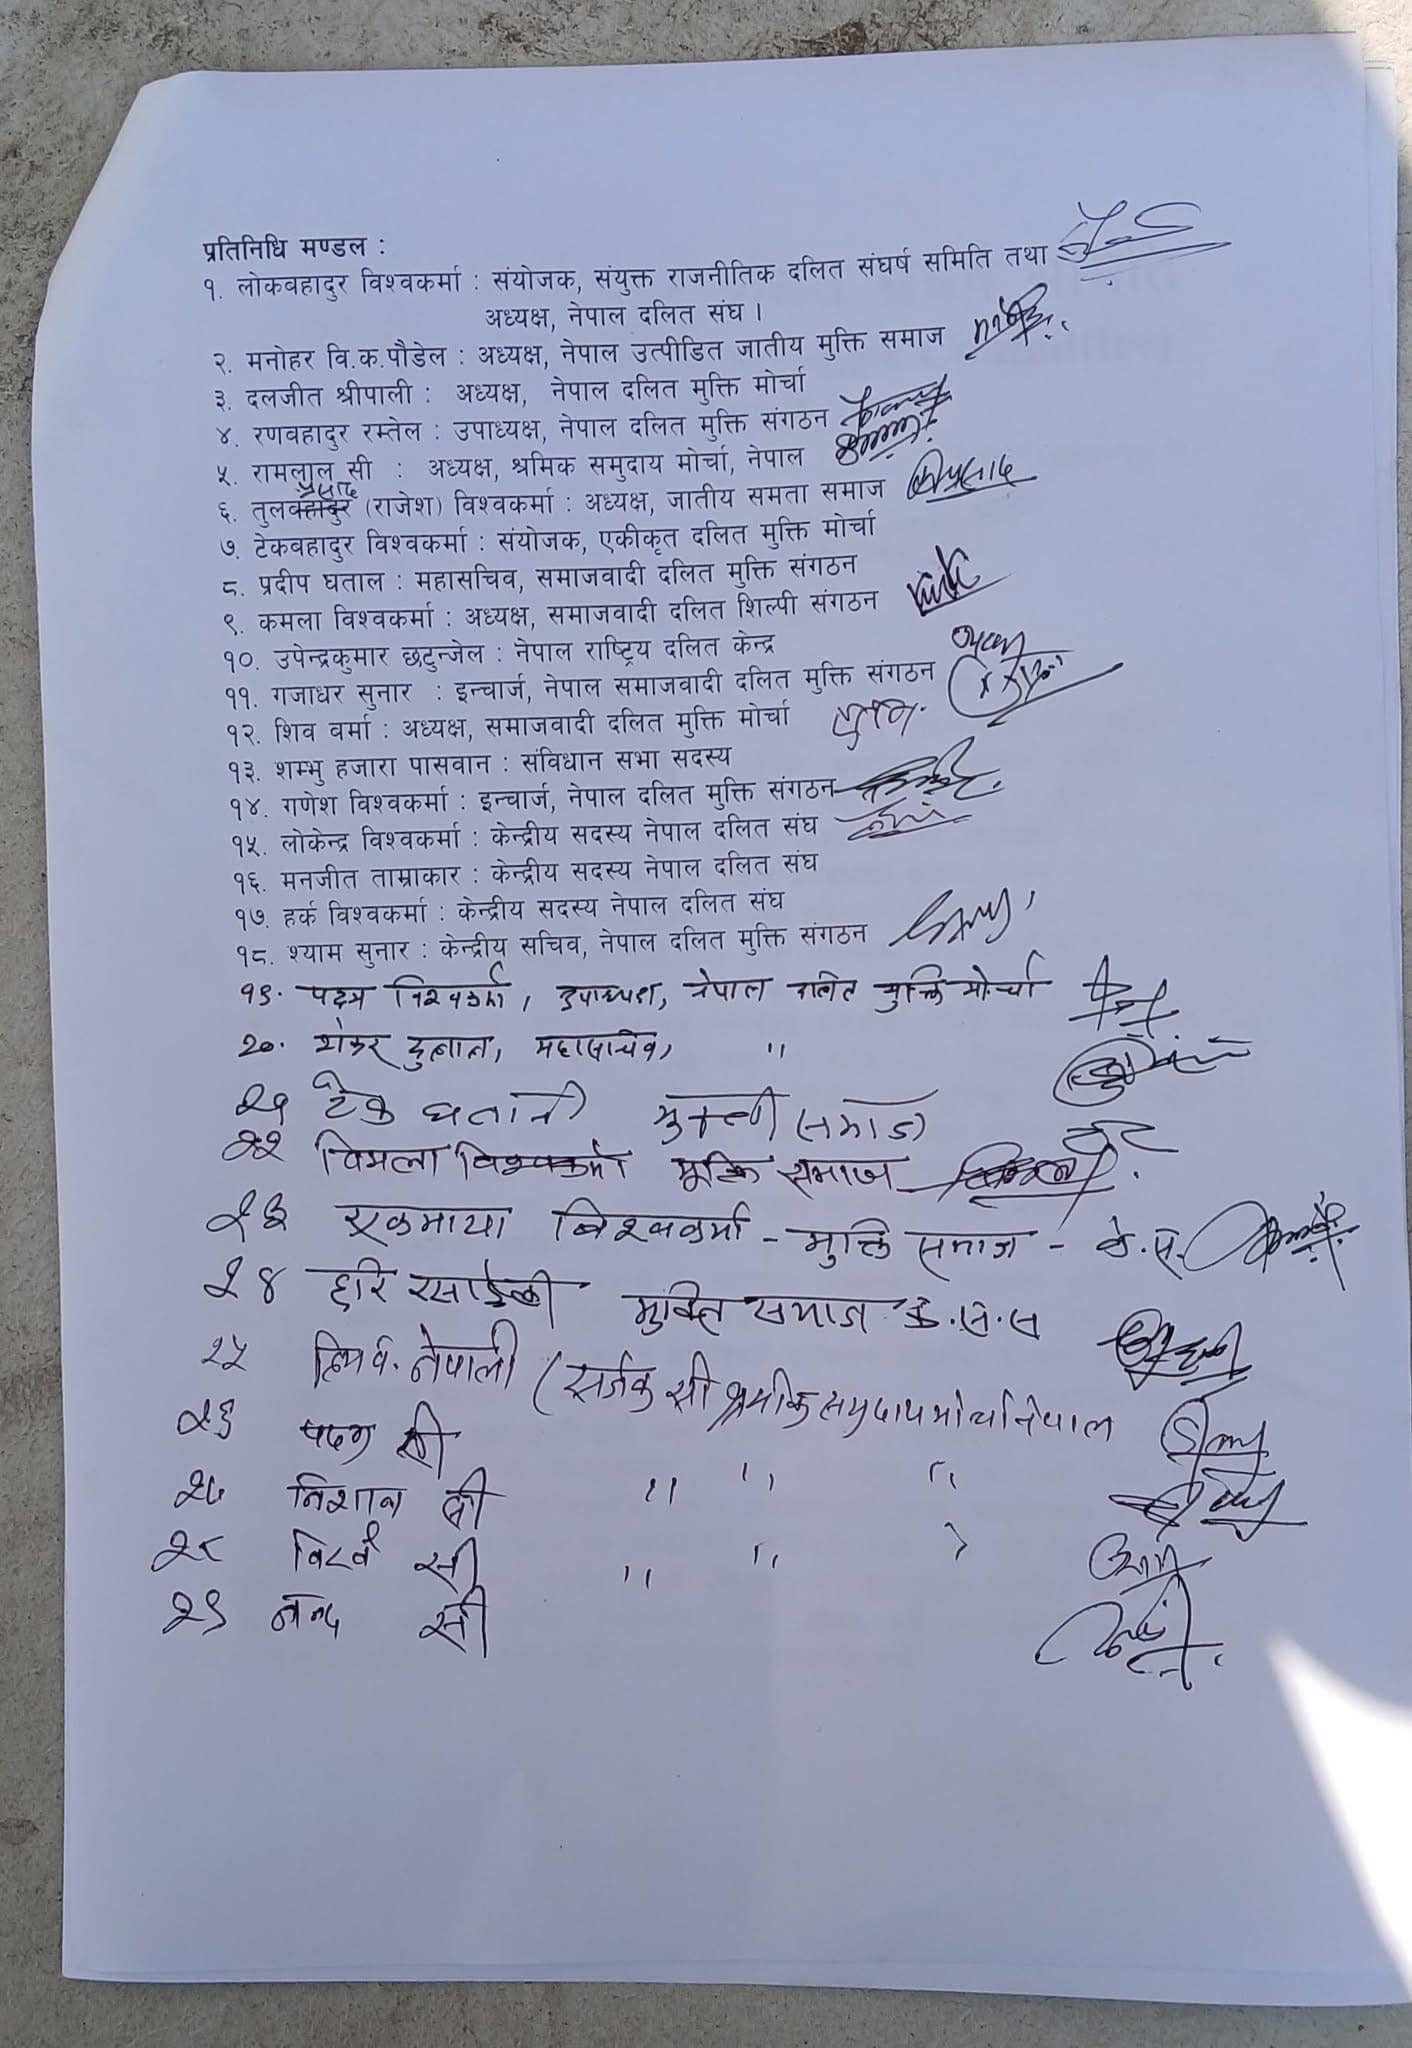 प्रतिनिधि मण्डल :
१. लोकवहादुर विश्वकर्मा : संयोजक, संयुक्त राजनीतिक दलित संघर्ष समिति तथा
अध्यक्ष, नेपाल दलित संघ ।
२. मनोहर वि.क.पौडेल : अध्यक्ष, नेपाल उत्पीडित जातीय मुक्ति समाज
३. दलजीत श्रीपाली : अध्यक्ष, नेपाल दलित मुक्ति मोर्चा
४. रणवहादुर रम्तेल : उपाध्यक्ष, नेपाल दलित मुक्ति संगठन
५. रामलाल सी : अध्यक्ष, श्रमिक समुदाय मोर्चा, नेपाल
प्रसाद
६. तुलवहादुर (राजेश) विश्वकर्मा : अध्यक्ष, जातीय समता समाज
७. टेकवहादुर विश्वकर्मा : संयोजक, एकीकृत दलित मुक्ति मोर्चा
८. प्रदीप घताल : महासचिव, समाजवादी दलित मुक्ति संगठन
९. कमला विश्वकर्मा : अध्यक्ष, समाजवादी दलित शिल्पी संगठन
१०. उपेन्द्रकुमार छटुन्जेल : नेपाल राष्ट्रिय दलित केन्द्र
११. गजाधर सुनार : इन्चार्ज, नेपाल समाजवादी दलित मुक्ति संगठन
१२. शिव वर्मा : अध्यक्ष, समाजवादी दलित मुक्ति मोर्चा
१३. शम्भु हजारा पासवान : संविधान सभा सदस्य
१४. गणेश विश्वकर्मा : इन्चार्ज, नेपाल दलित मुक्ति संगठन
१५. लोकेन्द्र विश्वकर्मा : केन्द्रीय सदस्य नेपाल दलित संघ
१६. मनजीत ताम्राकार : केन्द्रीय सदस्य नेपाल दलित संघ
१७. हर्क विश्वकर्मा : केन्द्रीय सदस्य नेपाल दलित संघ
१८. श्याम सुनार : केन्द्रीय सचिव, नेपाल दलित मुक्ति संगठन
१९. पदम विश्वकर्मा, उपाध्यक्ष, नेपाल दलित मुक्ति मोर्चा
२०. शंकर दुलाल, महासचिव, "
२१ टेक घतानी मुक्ती समाज
२२ विमला विश्वकर्मा मुक्ति समाज
२३ एकमाया बिश्वकर्मा - मुक्ति समाज - के.स.
२४ हरि रसाईली मुक्ति समाज के.स.स
२५ नेपाली (सर्जक सी श्रमीक समुदाय मोर्चा नेपाल
२६ पदम सी
२७ निशान सी " " "
२८ सी " "
२९ नन्द सी